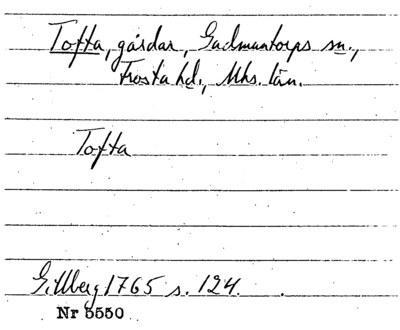 Tofta, gårdar, Gudmuntorps sn.,
Frosta hd., Mhs. län.
Tofta
Gillberg 1765 s. 124.
Nr 5550